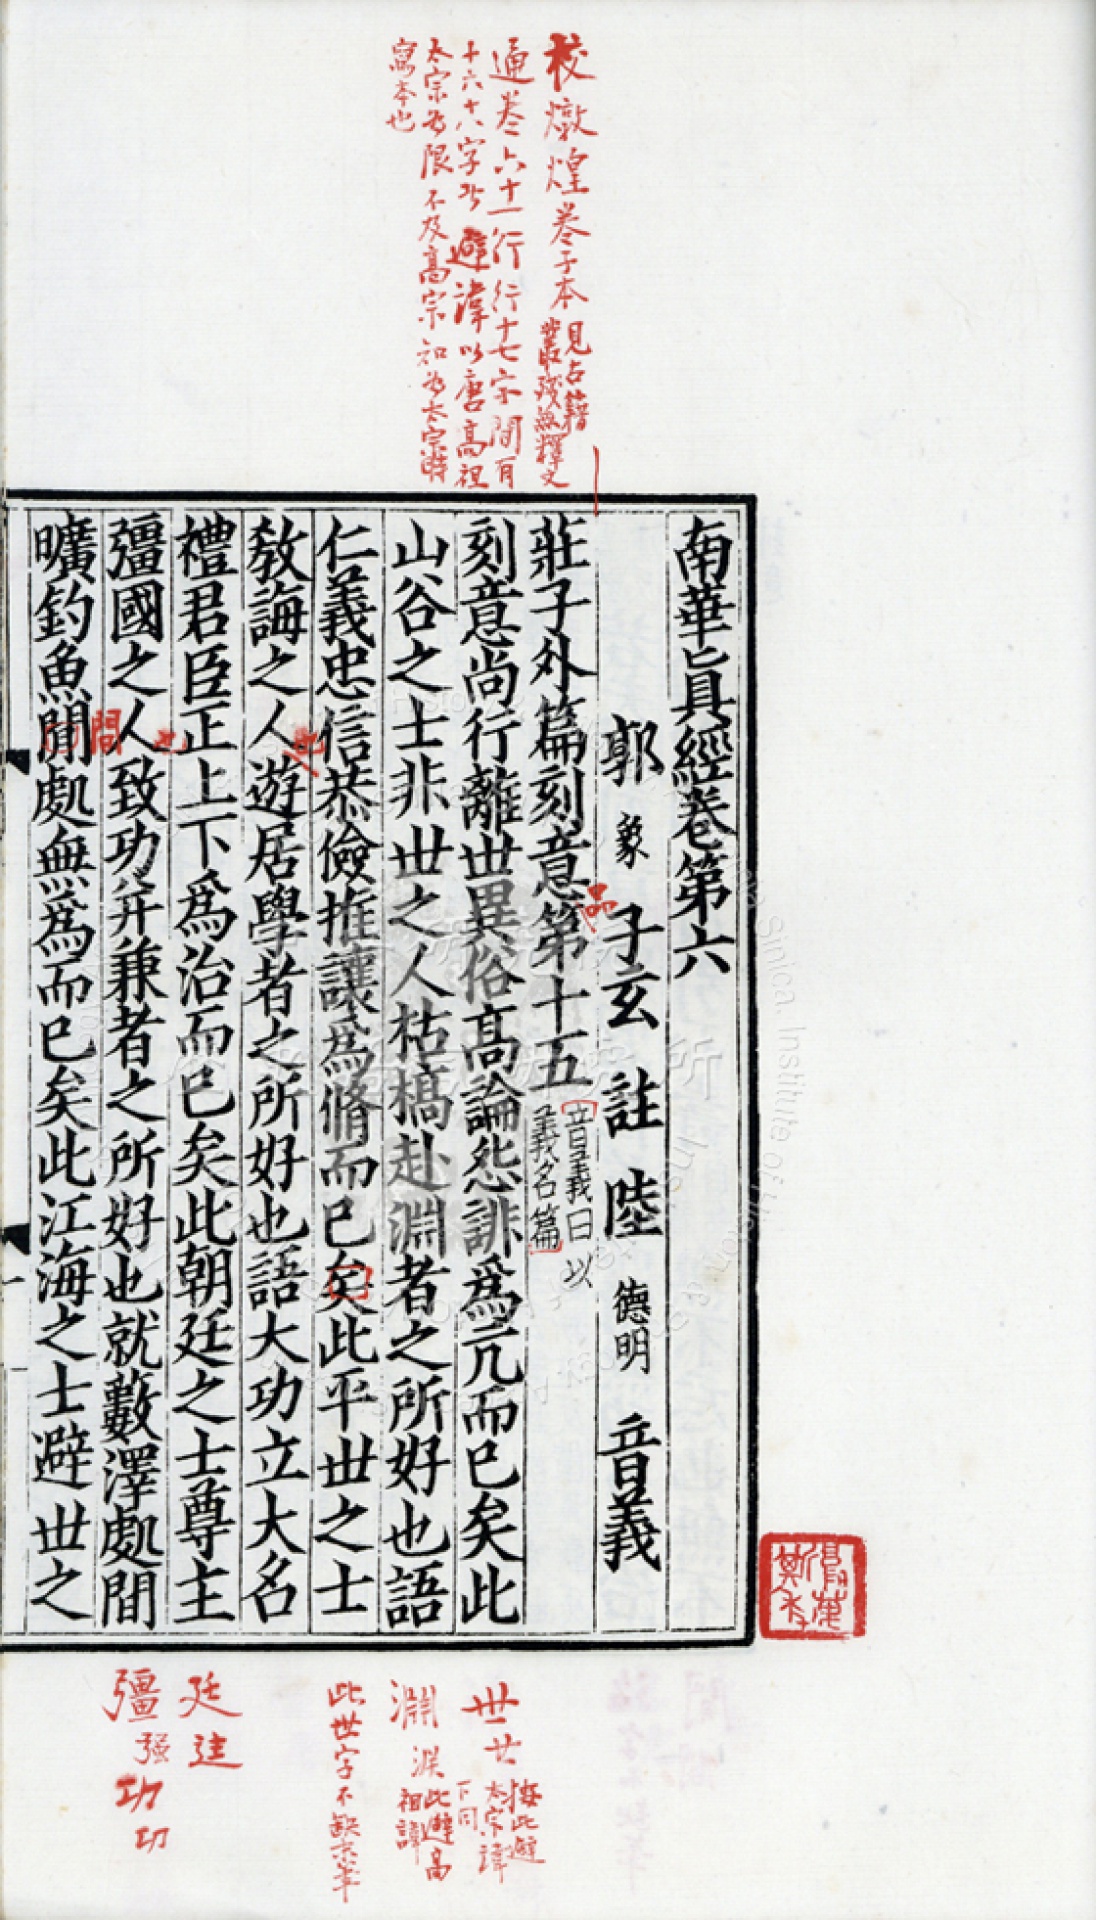 校燉煌卷子本見古籍
叢殘敍釋文
通卷六十一行行十七字間有
十六十八字者避諱以唐高祖
太宗為限不及高宗知為太宗時
寫本也
南華眞經卷第六
郭象子玄註陸德明音義
莊子外篇刻意第十五音義曰以
義名篇
品
刻意尚行離世異俗高論怨誹爲亢而已矣此
山谷之士非世之人枯槁赴淵者之所好也語
仁義忠信恭儉推讓爲脩而已矣此平世之士
教誨之人遊居學者之所好也語大功立大名
禮君臣正上下爲治而已矣此朝廷之士尊主
彊國之人致功并兼者之所好也就藪澤處閒
間
曠釣魚閒處無爲而已矣此江海之士避世之
世 按此避
太宗諱
下同
淵 此避高
祖諱
此世字不缺末筆
廷
彊 强
功 功